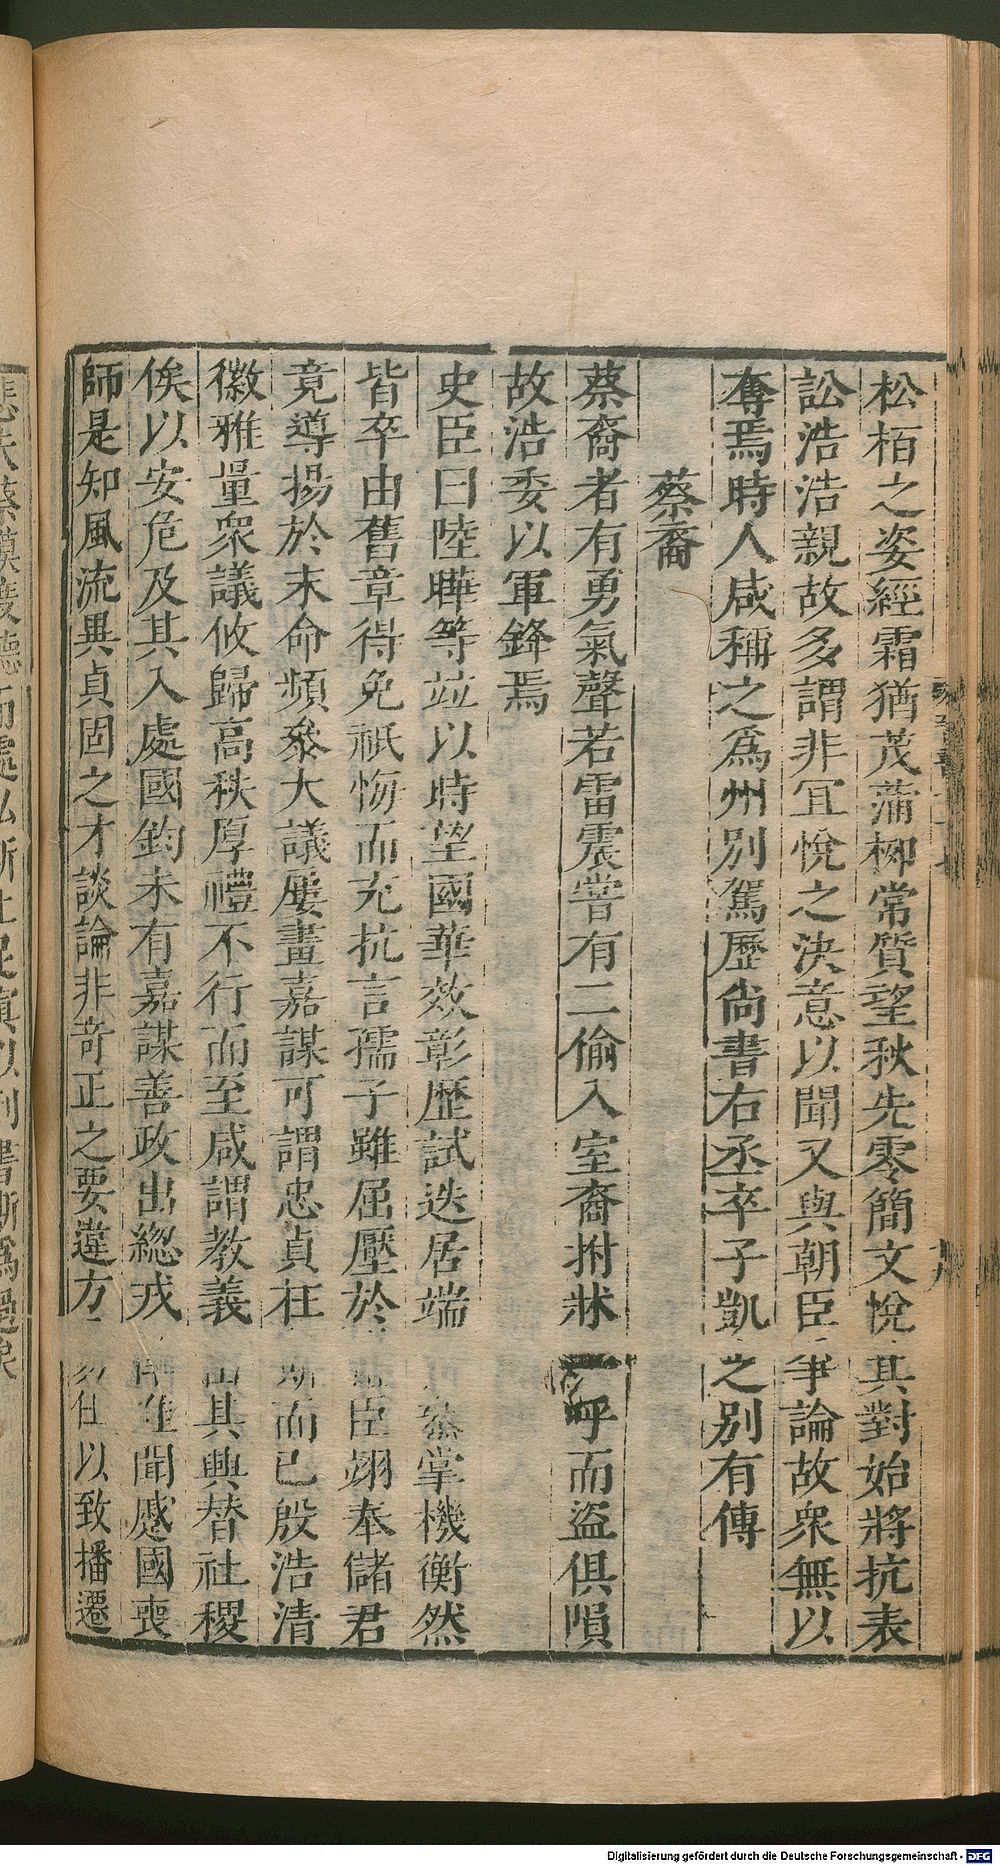 松栢之姿經霜猶茂蒲栁常質望秋先零簡文悅其對始將抗表
訟浩浩親故多謂非冝悅之決意以聞又與朝臣爭論故衆無以
奪焉時人咸稱之爲州別駕歷尙書右丞卒子凱之別有傳
蔡裔
蔡裔者有勇氣聲若雷震甞有二偷入室裔拊牀一呼而盜俱隕
故浩委以軍鋒焉
史臣曰陸曄等竝以時望國華效彰歷試迭居端掌機衡然
皆卒由舊章得免祇悔而充抗言孺子雖屈壓於臣翊奉儲君
竟導揚於末命頻叅大議屢畫嘉謀可謂忠貞在斯而已殷浩清
徽雅量衆議攸歸高秩厚禮不行而至咸謂教義其興替社稷
俟以安危及其入處國鈞未有嘉謀善政出緫戎唯聞蹙國喪
師是知風流異貞固之才談論非奇正之要違方以致播遷
Digitalisierung gefördert durch die Deutsche Forschungsgemeinschaft - DFG